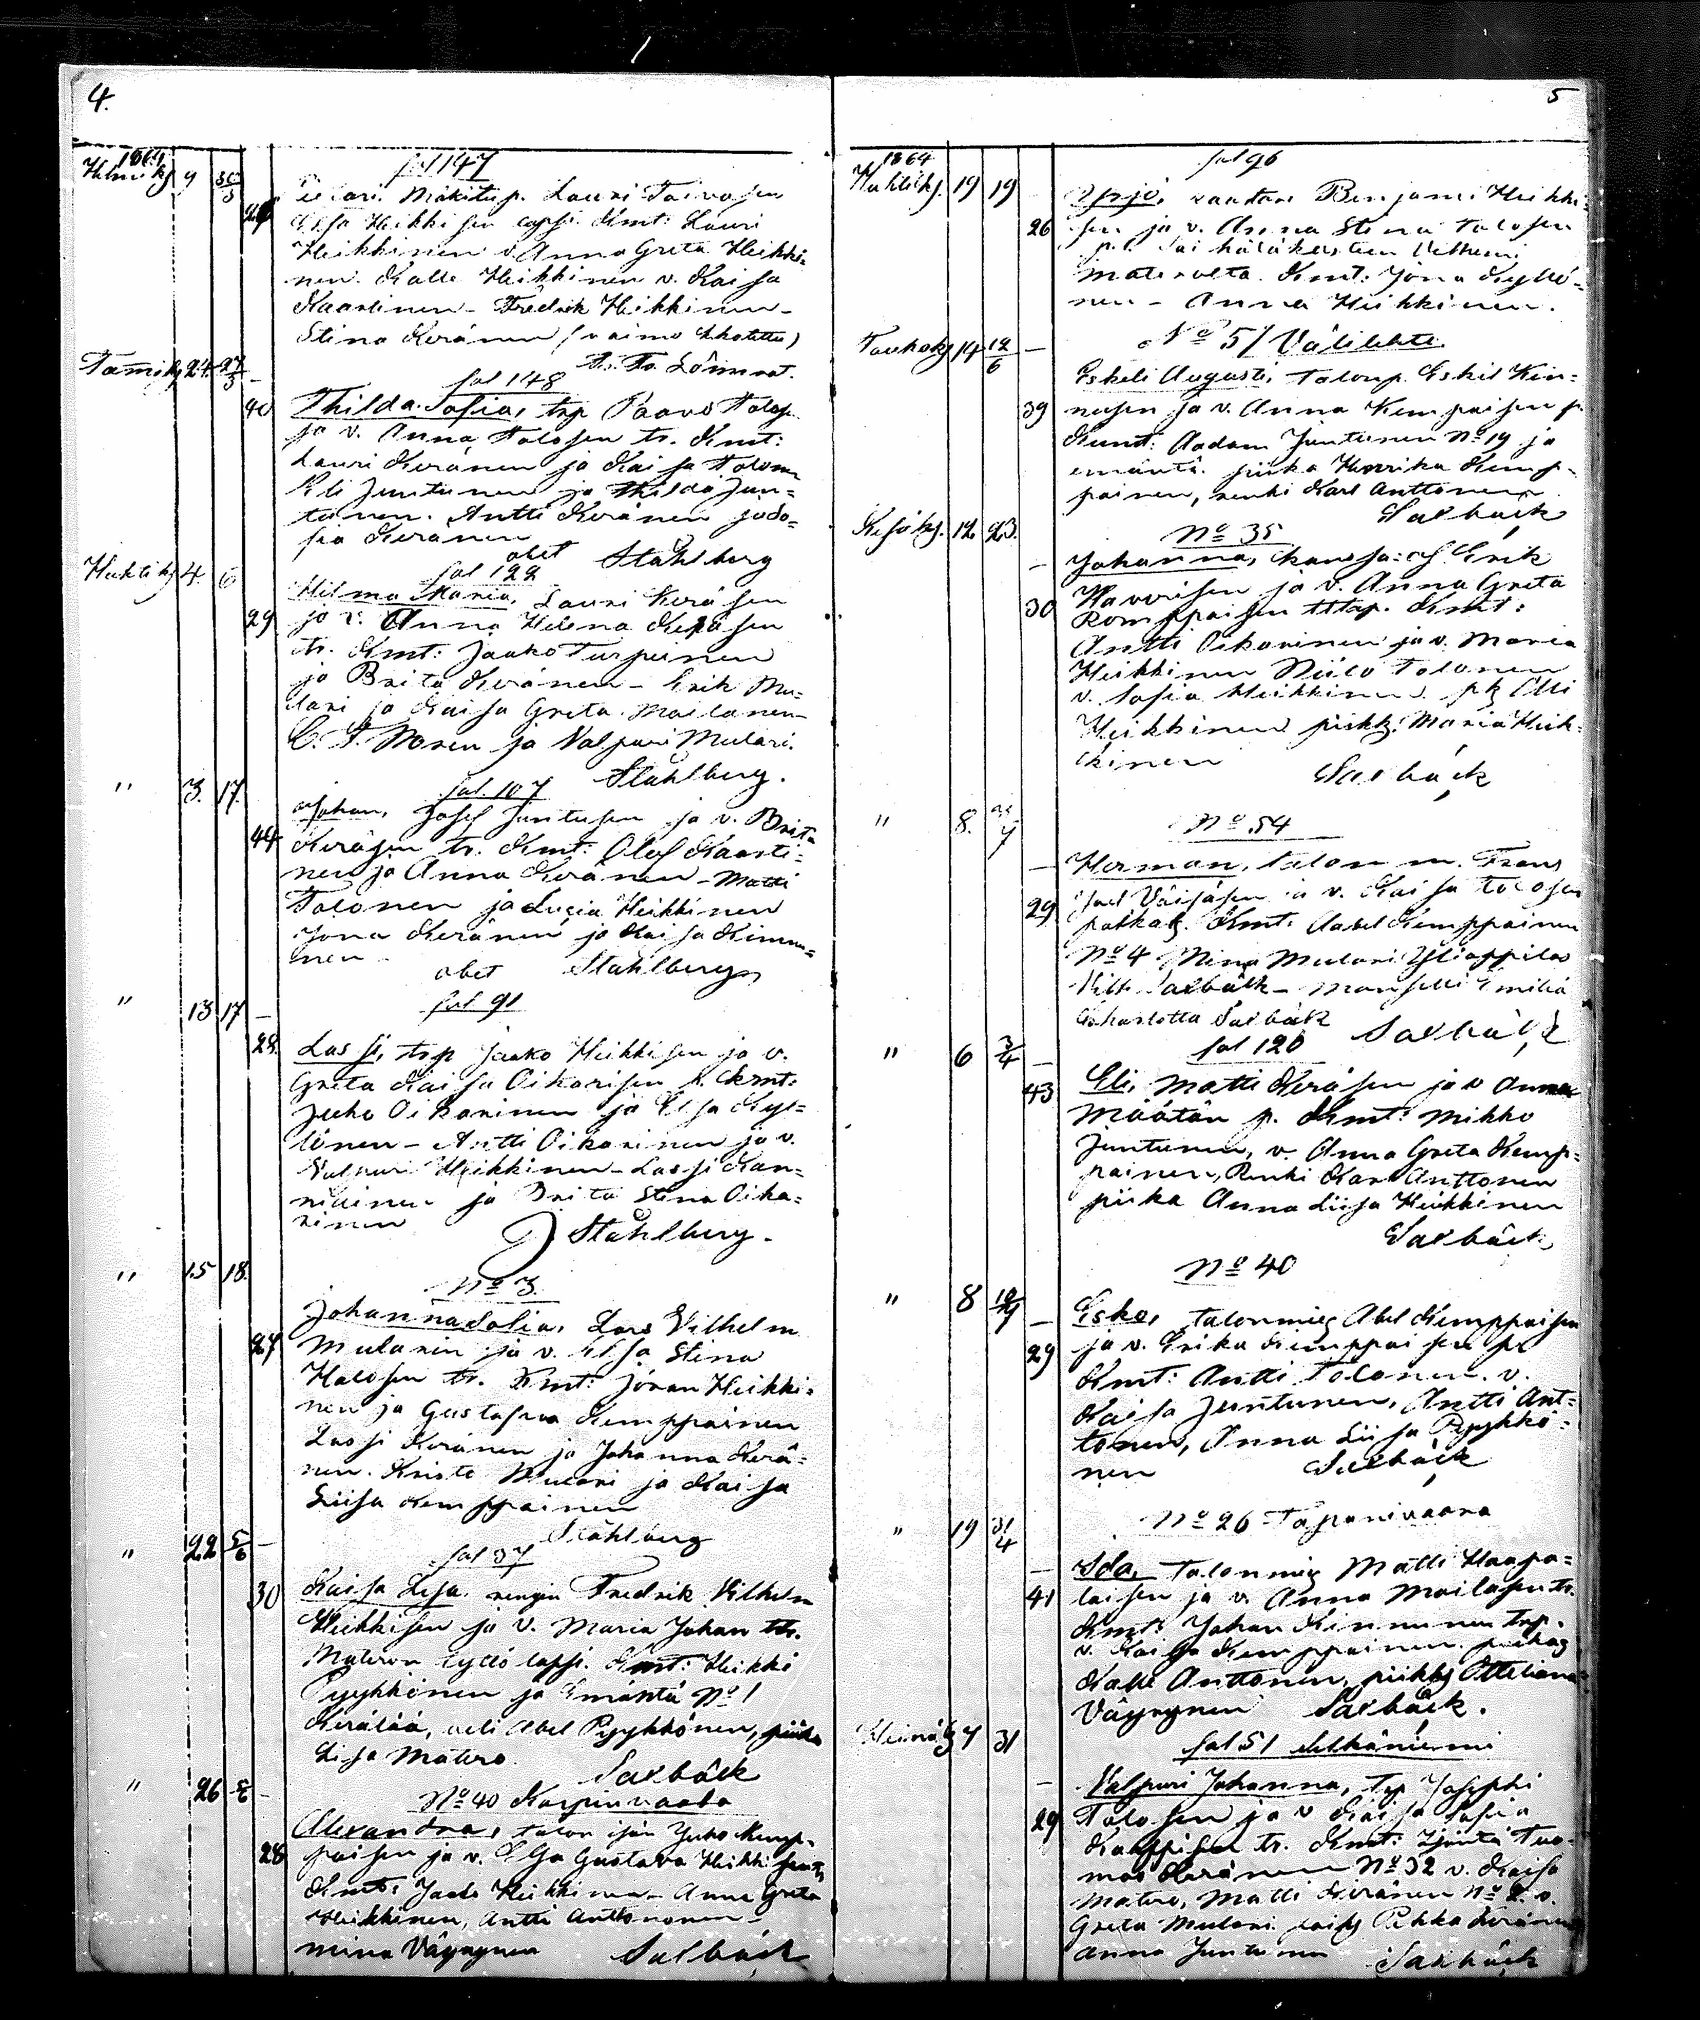 4.
1864
Helmik. 9 30/3
fol 147
Eelari. Mäkitup. Lauri Taivosen
Elsa Heikkisen lapsi. Kmt: Lauri
Heikkinen v. Anna Greta Heikki-
nen. Kalle Heikkinen v. Kaisa
Kaartinen - Fredrik Heikkinen -
Stina Keränen (vaimo
Lönnrot.
24 27/3 -
fol 148
40 Thilda Sofia, trp Paavo Talos.
ja v. Anna Talosen tr. Kmt:
Lauri Keränen ja Kaisa Tolonen
Eli Juntunen ja Thilda Jun-
tunen. Antti Keränen ja So-
fia Keränen
obet Ståhlberg
Huhtik. 4. 6
fol 122
Hilma Maria, Lauri Keräsen
29 ja v. Anna Helena Keräsen
tr. Kmt: Jaako Turpeinen
ja Brita Keränen - Erik Mu-
lari ja Kaisa Greta Mailanen
C. F. Moren ja Valpuri Mulari.
Ståhlberg.
" 3. 17.
fol. 107
Johan, Josef Juntusen ja v. Brita
44 Keräsen tr. Kmt: Olof Kaarti-
nen ja Anna Keränen - Matti
Tolonen ja Lucia Heikkinen
Jona Keränen ja Kaisa Kinnu-
nen -
obet Ståhlberg
" 13 17 -
fol 91
28. Lassi, trp Jaako Heikkisen ja v.
Greta Kaisa Oikarisen p. Kmt:
Juho Oikarinen ja Elsa Kyl-
lönen - Antti Oikarinen ja v.
Valpuri Heikkinen - Lassi Kan-
niainen ja Brita Stina Oika-
rinen
Ståhlberg.
" 15 18.
No 3.
Johanna Sofia, Lars Vilhelm
27 Mularin ja v. Elsa Stina
Halosen tr. Kmt: Jöran Heikki-
nen ja Gustafva Kemppainen
Lassi Keränen ja Johanna Kerä-
nen. Mulari ja Kaisa
Liisa Kemppainen
Ståhlberg
" 22 5/6 -
fol 37
30 Kaisa Lisa. rengin Fredrik Vilhelm
Heikkisen ja v. Maria Johan tr.
Materon tyttö lapsi. Kmt: Heikki
Pyykkönen ja Emäntä No 1
Kerälää, veli Abel Pyykkönen, piika
Lisa Matero
Saxbäck
" 26 -
No 40 Karpinvaara
Alexandra, talon isän Juho Kemp-
28 paisen ja v. Elsa Gustava Heikkisen tr.
Kmt: Jaako Heikkinen - Anna Greta
Heikkinen, Antti Anttononen -
Mina Väyrynen Saxbäck
5
1864
Huhtik. 19 19
fol 96
Yrjö, raatari Benjami Heikki-
26 sen ja v. Anna Stina Tolosen
p. l. Sai hätäkasteen
Materolta. Kmt: Jona Kyllö-
nen - Anna Heikkinen.
Toukok. 14 12/6 -
No 51 Välilehto
Eskeli Augusti, talonp. Eskil Kin-
39 nusen ja v. Anna Kempaisen p.
Kumt: Aadam Juntunen No 19 ja
emäntä. piika Henrika Kemp-
painen, renki Karl Anttonen
Saxbäck
Kesäk. 12 23.
No 35
- Johanna, Erik
Haverisen ja v. Anna Greta
30 Komppaisen Kmt:
Antti Oikarinen ja v. Maria
Heikkinen Niilo Tolonen
v. Sofia Heikkinen. pk Elli
Heikkinen piikk. Maria Heik-
kinen
Saxbäck
" 8.
No 54
- Herman, talon m. Frans
29 Joel Väisäsen ja v. Kaisa Tolosen
Kmt: Aabel Kemppainen
No 4 Mina Mulari Yliappilas
Vilh. Saxbäck - Manselli Emilia
Charlotta Saxbäck
Saxbäck
" 6 3/4 -
fol 120
43 Eli, Matti Keräsen ja v Anna
Määtän p. Kmt: Mikko
Juntunen, v. Anna Greta Kemp-
painen, Renki Karl Anttonen
piika Anna Liisa Heikkinen
Saxbäck
" 8
No 40
- Esko, talonmies Abel Kemppaisen
29 ja v. Erika Kemppaisen pl
Kmt: Antti Tolonen. v.
Kaisa Juntunen, Antti Ant-
tonen, Anna Liisa Pyykkö-
nen Saxbäck
" 19 31/4
No 26 Tapanivaara
- Ida, talonmies Matti Haapa-
41 laisen ja v. Anna Mailasen tr.
Kmt: Johan Kinnunen trp.
v. Kaisa Kemppainen. poikas
Kalle Anttonen, piikks Otteliana
Väyrynen Saxbäck.
Heinäk 7 31
fol 51 Selkäniemi
- Valpuri Johanna, trp Josephi
29 Tolosen ja v Kaisa Sofia
Kauppisen tr. Kmt: Isäntä Tuo-
mas Keränen No 32 v. Kaisa
Matero, Matti Keränen No 2. v.
Greta Mulari Pekka Keränen
Anna Juntunen Saxbäck